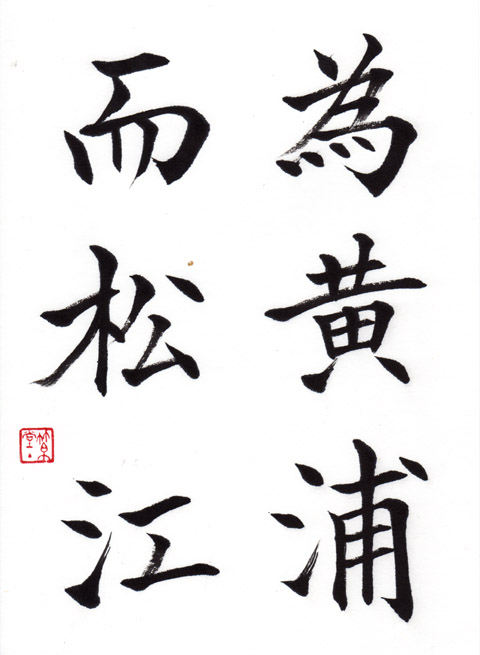 為黄浦
而松江